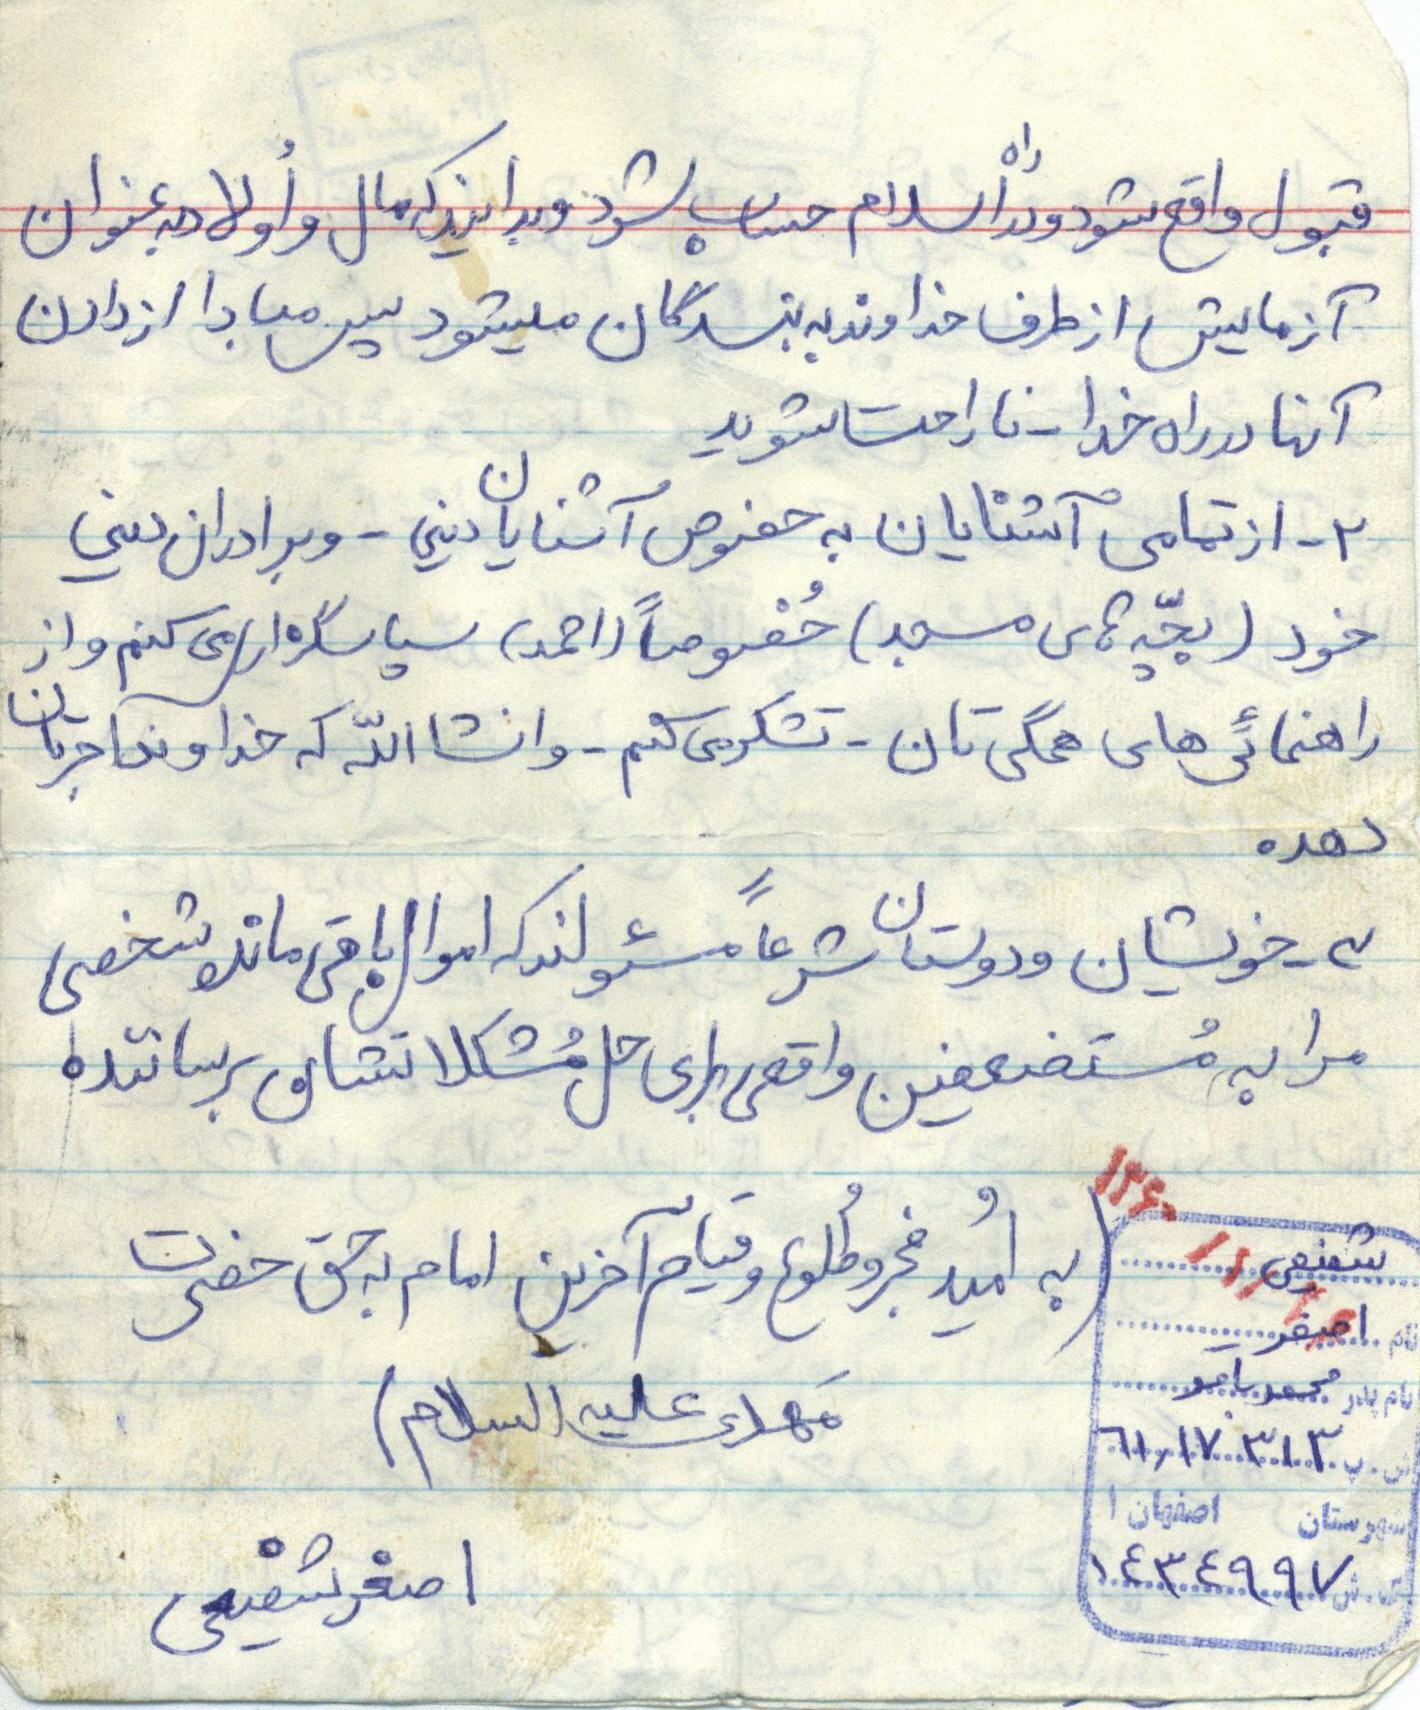 قبول واقع شود و در راه اسلام حساب بشود و بدانید که مال و اُولاد به عنوان
آزمایش از طرف خداوند به بندگان میشود پس مبادا از دادن
آنها در راه خدا - ناراحت شوید
۲- از تمامی آشنایان به خصوص آشنایان دینی - و برادران دینی
خود (بچّه های مسجد) خُصوصاً (احمد) سپاسگزاری می کنم و از
راهنمائی های همگی تان - تشکر می کنم - و انشاالله که خداوند اجرتان
دهد
۳- خویشان و دوستان شرعاً مسئولند که اموال باقی مانده شخصی
مرا به مُستضعفین واقعی برای حل مُشکلاتشان برسانند
(به اُمید فجر و طُلوع و قیام آخرین امام به حق حضرت
مَهدی علیه السلام)
اصغر شفیعی
۱۳۶۰
شفیعی
نام اصغر
نام پدر محمدباقر
ش.پ ۶۱,۱۷۰۳۱۳
شهرستان اصفهان ۱
ک.ش ۱۴۳۴۹۹۷